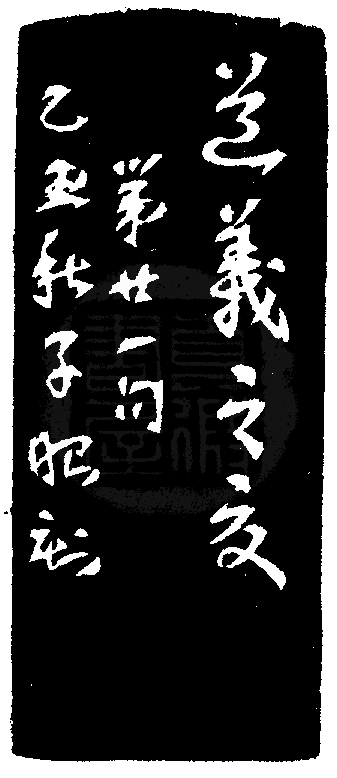 道義之交
第廿一
乙丑秋子昭刻